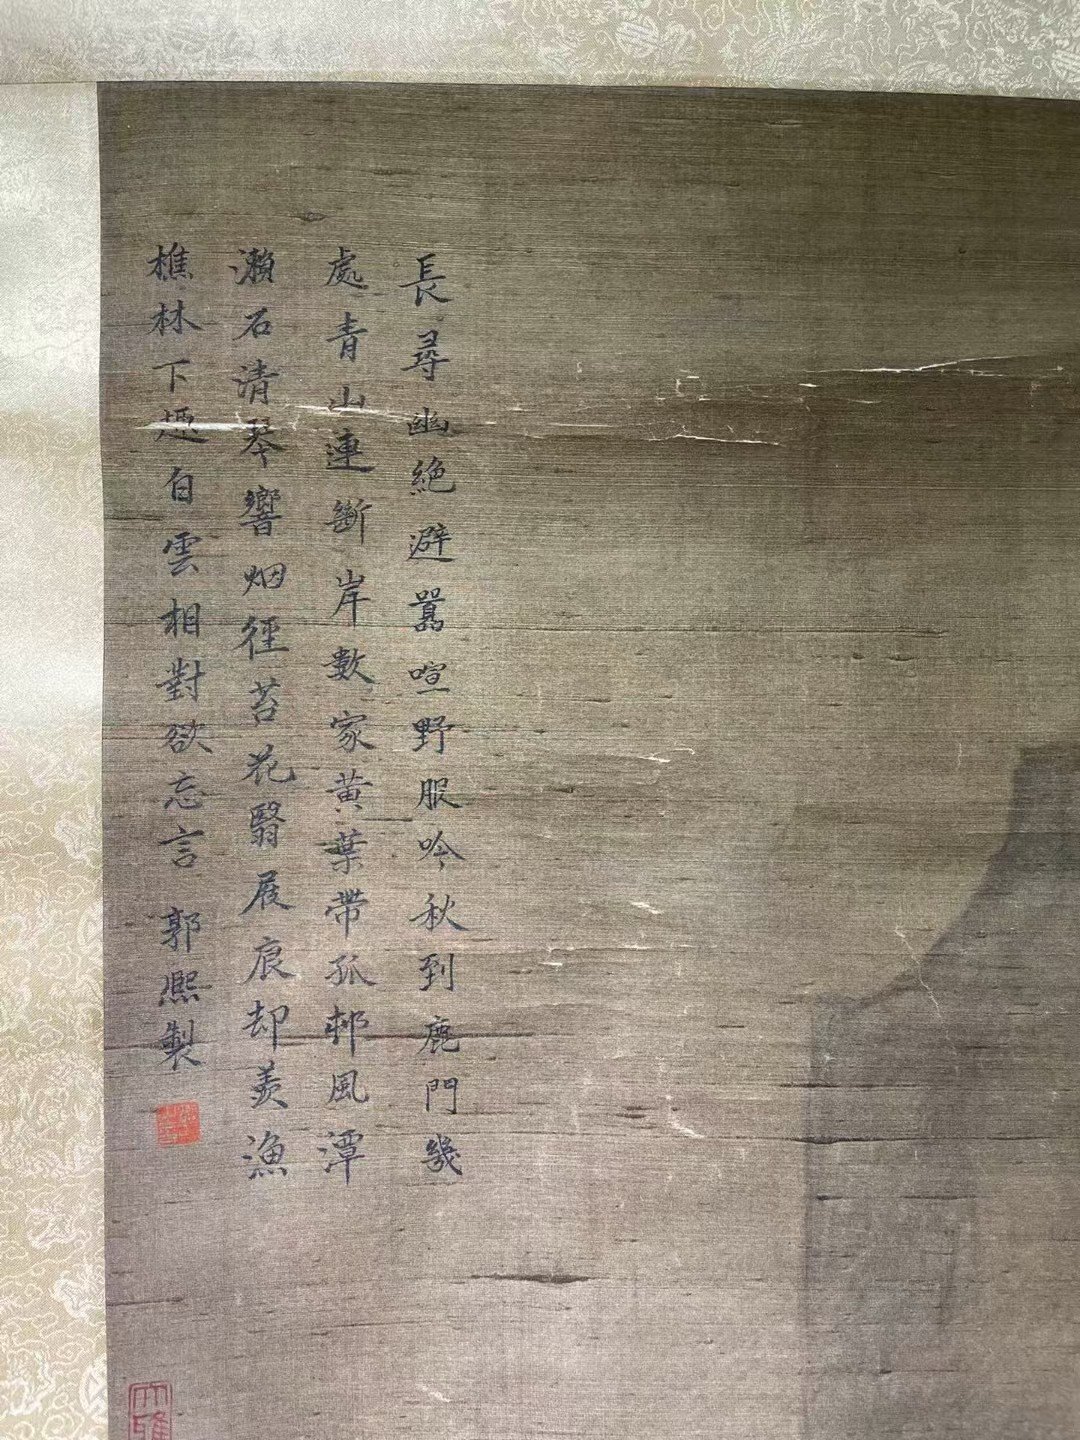 長尋幽絶避囂喧野服吟秋到鹿門幾
處青山連斷岸數家黄葉帶孤邨風潭
瀨石清琴響烟徑苔花翳屐痕却羨漁
樵林下趣白雲相對欲忘言 郭熙製